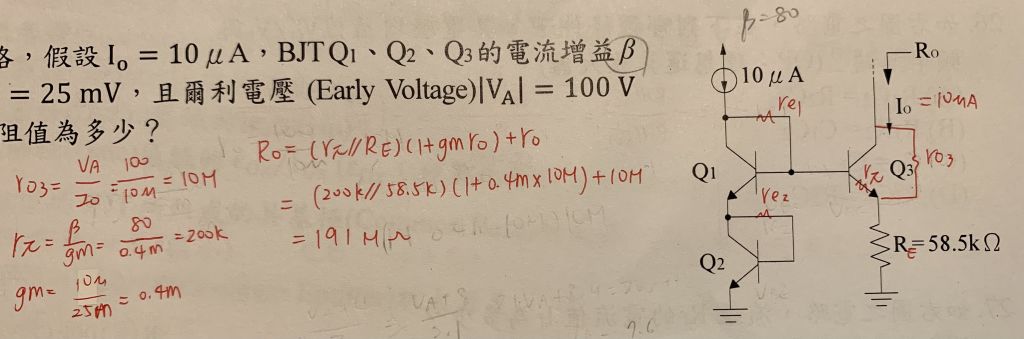 β=80
，假設 I₀ = 10 μA，BJT Q1、Q2、Q3的電流增益β
= 25 mV，且爾利電壓 (Early Voltage)|VA| = 100 V
阻值為多少？
ro3= VA/Io = 100/10μ = 10M
rπ= β/gm = 80/0.4m = 200k
gm= 10μ/25m = 0.4m
Ro= (rπ//RE)(1+gmro)+ro
= (200k//58.5k)(1+0.4m×10M)+10M
= 191M
10 μA
re1
Ro
Io = 10μA
Q1
rπ
Q3
ro3
re2
Q2
RE=58.5kΩ